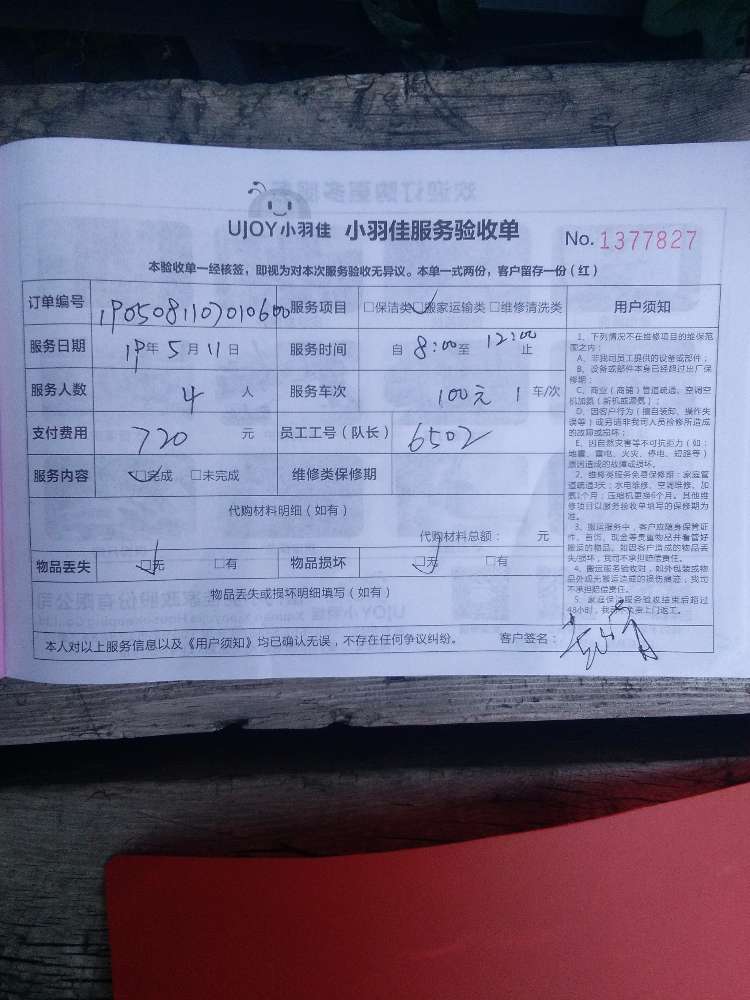 UJOY小羽佳 小羽佳服务验收单 No. 1377827
本验收单一经核签，即视为对本次服务验收无异议。本单一式两份，客户留存一份（红）
订单编号 190508110701060 服务项目 □保洁类 □搬家运输类 □维修清洗类 用户须知
服务日期 19年5月11日 服务时间 自 8:00 至 12:00 止
服务人数 4 人 服务车次 100元 1 车/次
支付费用 720 元 员工工号（队长） 6502
服务内容 □完成 □未完成 维修类保修期
代购材料明细（如有）
代购材料总额： 元
物品丢失 □无 □有 物品损坏 □无 □有
物品丢失或损坏明细填写（如有）
本人对以上服务信息以及《用户须知》均已确认无误，不存在任何争议纠纷。 客户签名：
1、下列情况不在维修项目的维保范
围之内：
A、非我司员工提供的设备或部件；
B、设备或部件本身已经超过出厂保
修期；
C、商业（商铺）管道疏通、空调空
机加氟（新机或漏氟）；
D、因客户行为（擅自装卸、操作失
误等）或另请非我司人员检修所造成
的故障或损坏；
E、因自然灾害等不可抗拒力（如：
地震、雷电、火灾、停电、短路等）
原因造成的故障或损坏。
2、维修类服务免费保修期：家庭管
道疏通3天；水电维修、空调维修、加
氟1个月；压缩机更换6个月。其他维
修项目以服务验收单填写的保修期为
准。
3、搬运服务中，客户应随身保管证
件、首饰、现金等贵重物品并看管好
搬运的物品。如因客户造成的物品丢
失/损坏，我司不承担赔偿责任。
4、搬运服务验收时，如外包装或物
品外观无搬运造成的损伤痕迹，我司
不承担赔偿责任。
5、家庭保洁服务验收结束后超过
48小时，我司不负责上门返工。